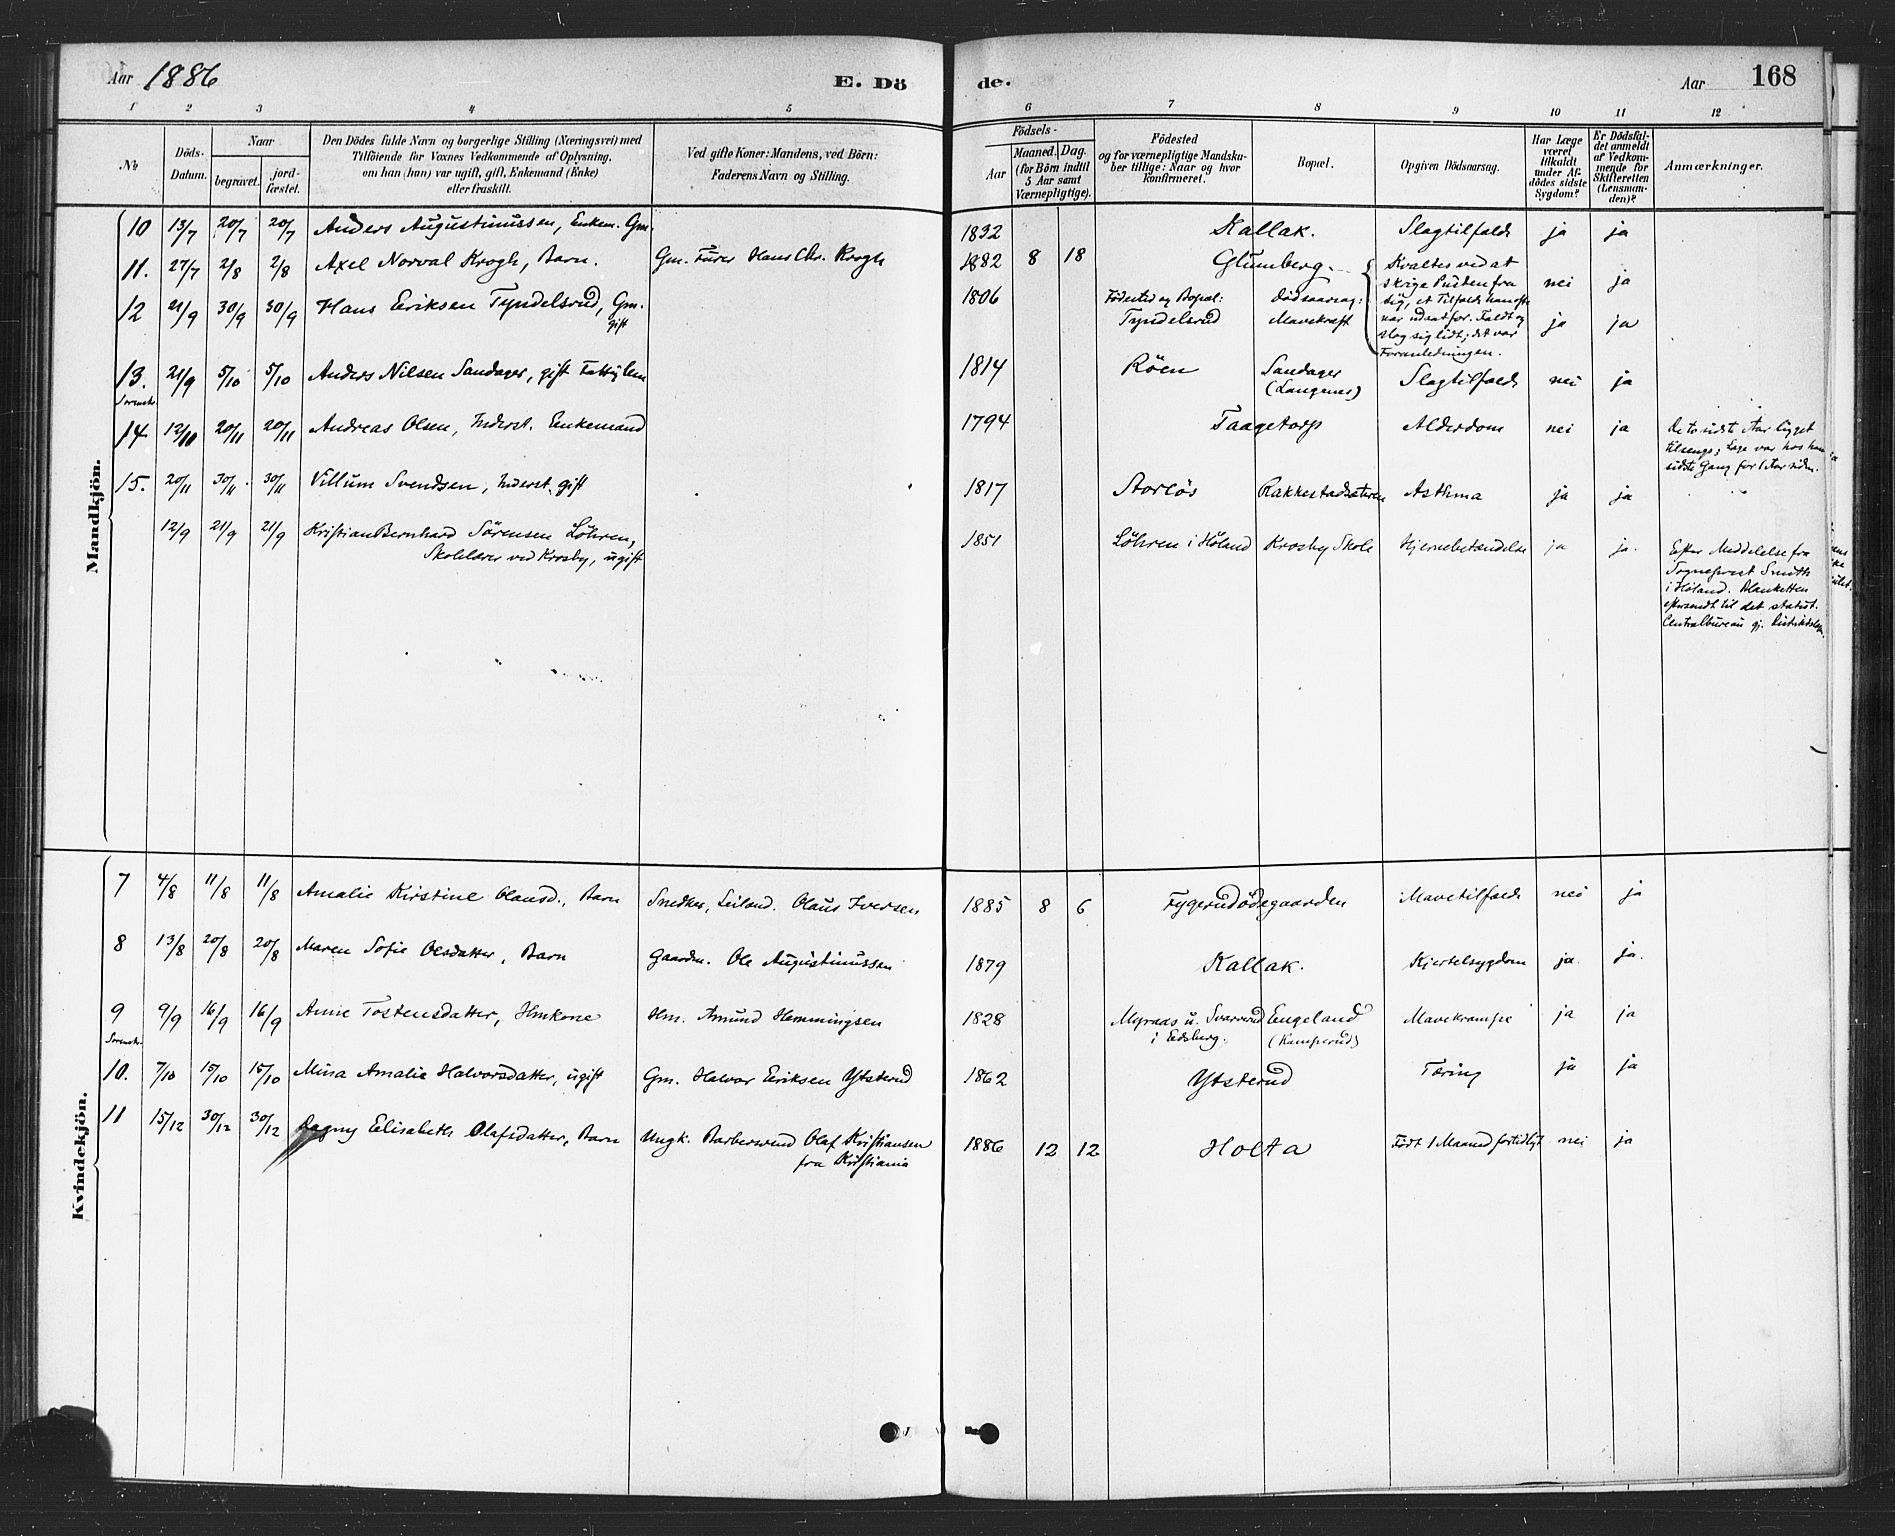 Aar 1886 E. Dö de. Aar 168
1 2 3 4 5 6 7 8 9 10 11 12
No
Döds-Datum.
Naar
begravet.
jord-fæstet.
Den Dödes fulde Navn og borgerlige Stilling (Næringsvei) med
Tilföiende for Voxnes Vedkommende af Oplysning,
om han (hun) var ugift, gift, Enkemand (Enke)
eller fraskilt.
Ved gifte Koner: Mandens, ved Börn:
Faderens Navn og Stilling.
Födsels-
Aar
Maaned. Dag.
(for Börn indtil
5 Aar samt
Værnepligtige).
Födested
og for værnepligtige Mandska-
ber tillige: Naar og hvor
konfirmeret.
Bopæl.
Opgiven Dödsaarsag.
Har Læge
været
tilkaldt
under Af-
dödes sidste
Sygdom?
Er Dödsfal-
det anmeldt
af Vedkom-
mende for
Skifteretten
(Lensman-
den)?
Anmærkninger.
Mandkjön.
10 13/7 20/7 20/7 Anders Augustinussen, Enkem. Gm. 1832 Kallak. Slagtilfælde ja ja
11. 27/7 2/8 2/8 Axel Norval Krogh, Barn. Gm. Furer Hans Chr. Krogh 1882 8 18 Glumberg. Kvaltes ved at
skrige Puden fra
sig, et Tilfælde han ofte
var udsat for. Faldt og
slog sig lidt; det var
Foranledningen. nei ja
12 21/9 30/9 30/9 Hans Eriksen Tyndelsrud, Gm.
gift 1806 Födested og Bopæl:
Tyndelsrud Dödsaarsag:
Mavekræft ja ja
13. 21/9 5/10 5/10 Anders Nilsen Sandager, gift Fattiglem 1814 Röen Sandager
(Langenes) Slagtilfælde nei ja
14 12/10 20/11 20/11 Andreas Olsen, Inderst. Enkemand 1794 Taagetorp Alderdom nei ja De to sidst Aar ligget
tilsengs; Læge var hos ham
sidste Gang for 1 Aar siden.
15. 20/11 30/11 30/11 Villum Svendsen, Inderst. gift 1817 Storlös Rakkestadsæteren Asthma ja ja
12/9 21/9 21/9 Kristian Bernhard Sörensen Löhren,
Skolelærer ved Krosby, ugift 1851 Löhren i Höland Krosby Skole Hjernebetændelse ja ja. Efter Meddelelse fra
Sogneprest Smith
i Höland. Blanketten
eftersendt til det statist.
Centralbureau gj.
Kvindekjön.
7 4/8 11/8 11/8 Amalie Kirstine Olausd., Barn Snedker, Leiland. Olaus Iversen 1885 8 6 Fygerudödegaarden Mavetilfælde nei ja
8 13/8 20/8 20/8 Maren Sofie Olesdatter, Barn Gaardm. Ole Augustinussen 1879 Kallak. Kjertelsygdom ja ja.
9 9/9 16/9 16/9 Anne Tostensdatter, Hmkone Hm. Amund Hemmingsen 1828 Myraas u. Svarverud
i Eidsberg. Engeland
(Kamperud) Mavekrampe ja ja
10. 7/10 15/10 15/10 Mina Amalie Halvorsdatter, ugift Gm. Halvor Eriksen Ytsterud 1862 Ytsterud Tæring ja ja
11 15/12 30/12 30/12 Dagny Elisabeth Olafsdatter, Barn Ungk. Barbersvend Olaf Kristiansen
fra Kristiania 1886 12 12 Holta Födt 1 Maaned fortidligt nei ja